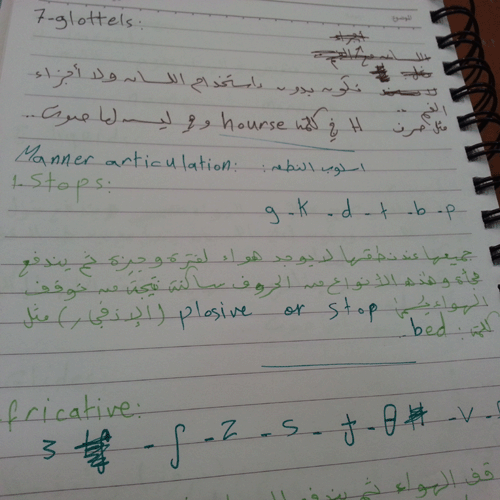 7-glottels:
تكون بدون باستخدام اللسان ولا أجزاء
الفم..
مثل حرف H في كلمة hourse وهو ليس لها صوت..
Manner articulation: اسلوب النطق:
1.Stops:
g - k - d - t - b - p
جميعها عند نطقها لا يوجد هواء لفترة وجيزة ثم يندفع
فجأة وهذه الأنواع من الحروف ساكنة نتيجة من توقف
الهواء plosive or stop (الانفجار) مثل
كلمة: bed.
fricative:
3 - ʃ - z - s - f - θ - v -
الهواء ثم يندفع